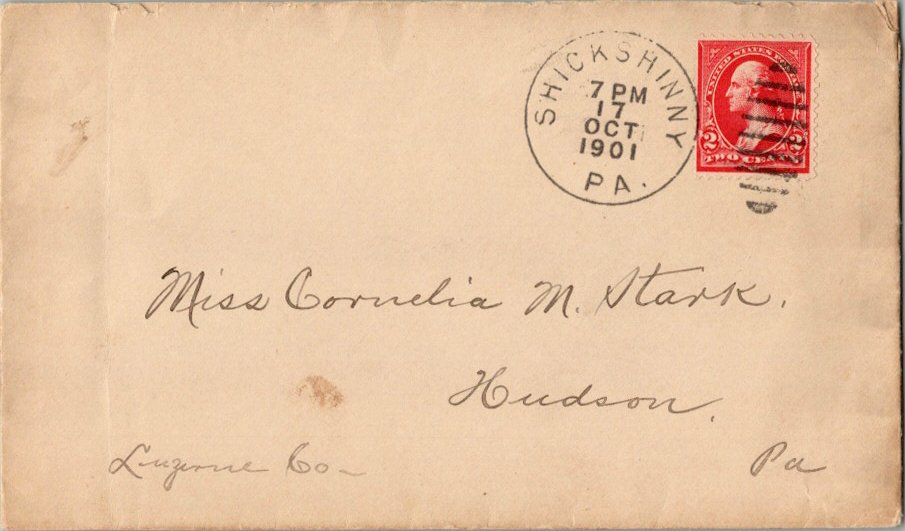 SHICKSHINNY
7 PM
17
OCT
1901
PA.
UNITED STATES POSTAGE
2 2
TWO CENTS
Miss Cornelia M. Stark.
Hudson,
Luzerne Co-
Pa